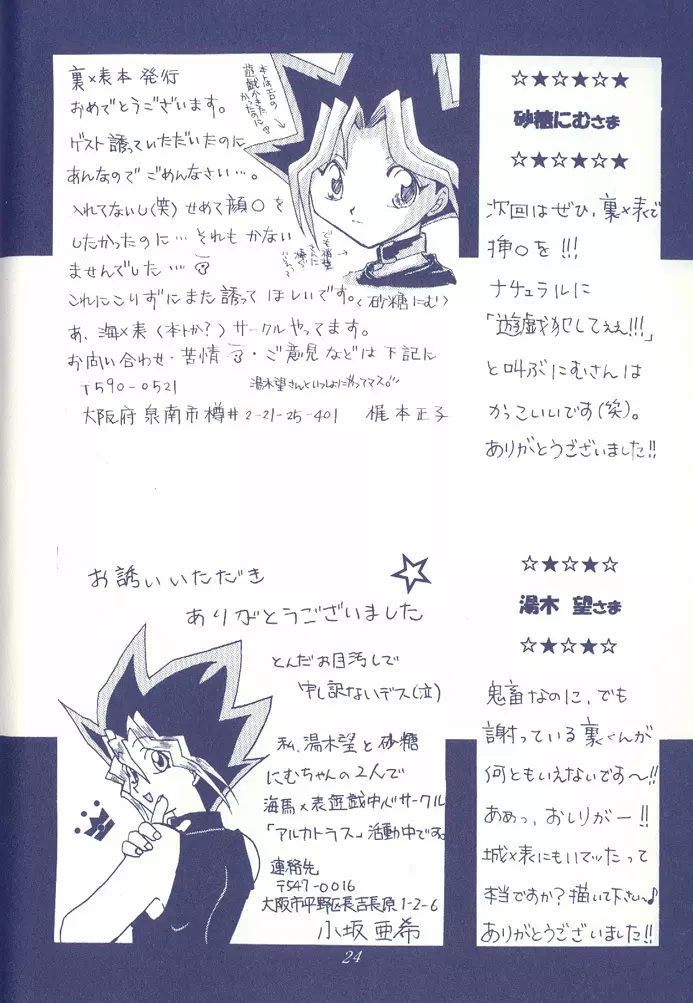 裏×表本 発行
おめでとうございます。
ゲスト誘っていただいたのに
あんなのでごめんなさい…。
入れてないし(笑)せめて顔○を
したかったのに…それもかない
ませんでした…
これにこりずにまた誘ってほしいです。(砂糖にむ)
あ、海×表(本トか?)サークルやってます。
お問い合わせ・苦情・ご意見などは下記に
〒590-0521
湯木望さんといっしょにやってマス。
大阪府泉南市樽井2-21-25-401 梶本正子
本トはエロの
遊戯がかきた
かったのに
☆★☆★☆★
砂糖にむさま
☆★☆★☆★
次回はぜひ、裏×表で
挿○を!!!
ナチュラルに
「遊戯犯してぇぇ!!!」
と叫ぶにむさんは
かっこいいです(笑)。
ありがとうございました!!
お誘いいただき
ありがとうございました
とんだお目汚しで
申し訳ないデス(泣)
私、湯木望と砂糖
にむちゃんの2人で
海馬×表遊戯中心サークル
「アルカトラス」活動中です。
連絡先
〒547-0016
大阪市平野区長吉長原1-2-6
小坂亜希
☆★☆★☆
湯木 望さま
☆★☆★☆
鬼畜なのに、でも
謝っている裏くんが
何ともいえないです〜!!
あぁっ、おしりがー!!
城×表にもいてッたって
本当ですか?描いて下さい〜♪
ありがとうございました!!
24